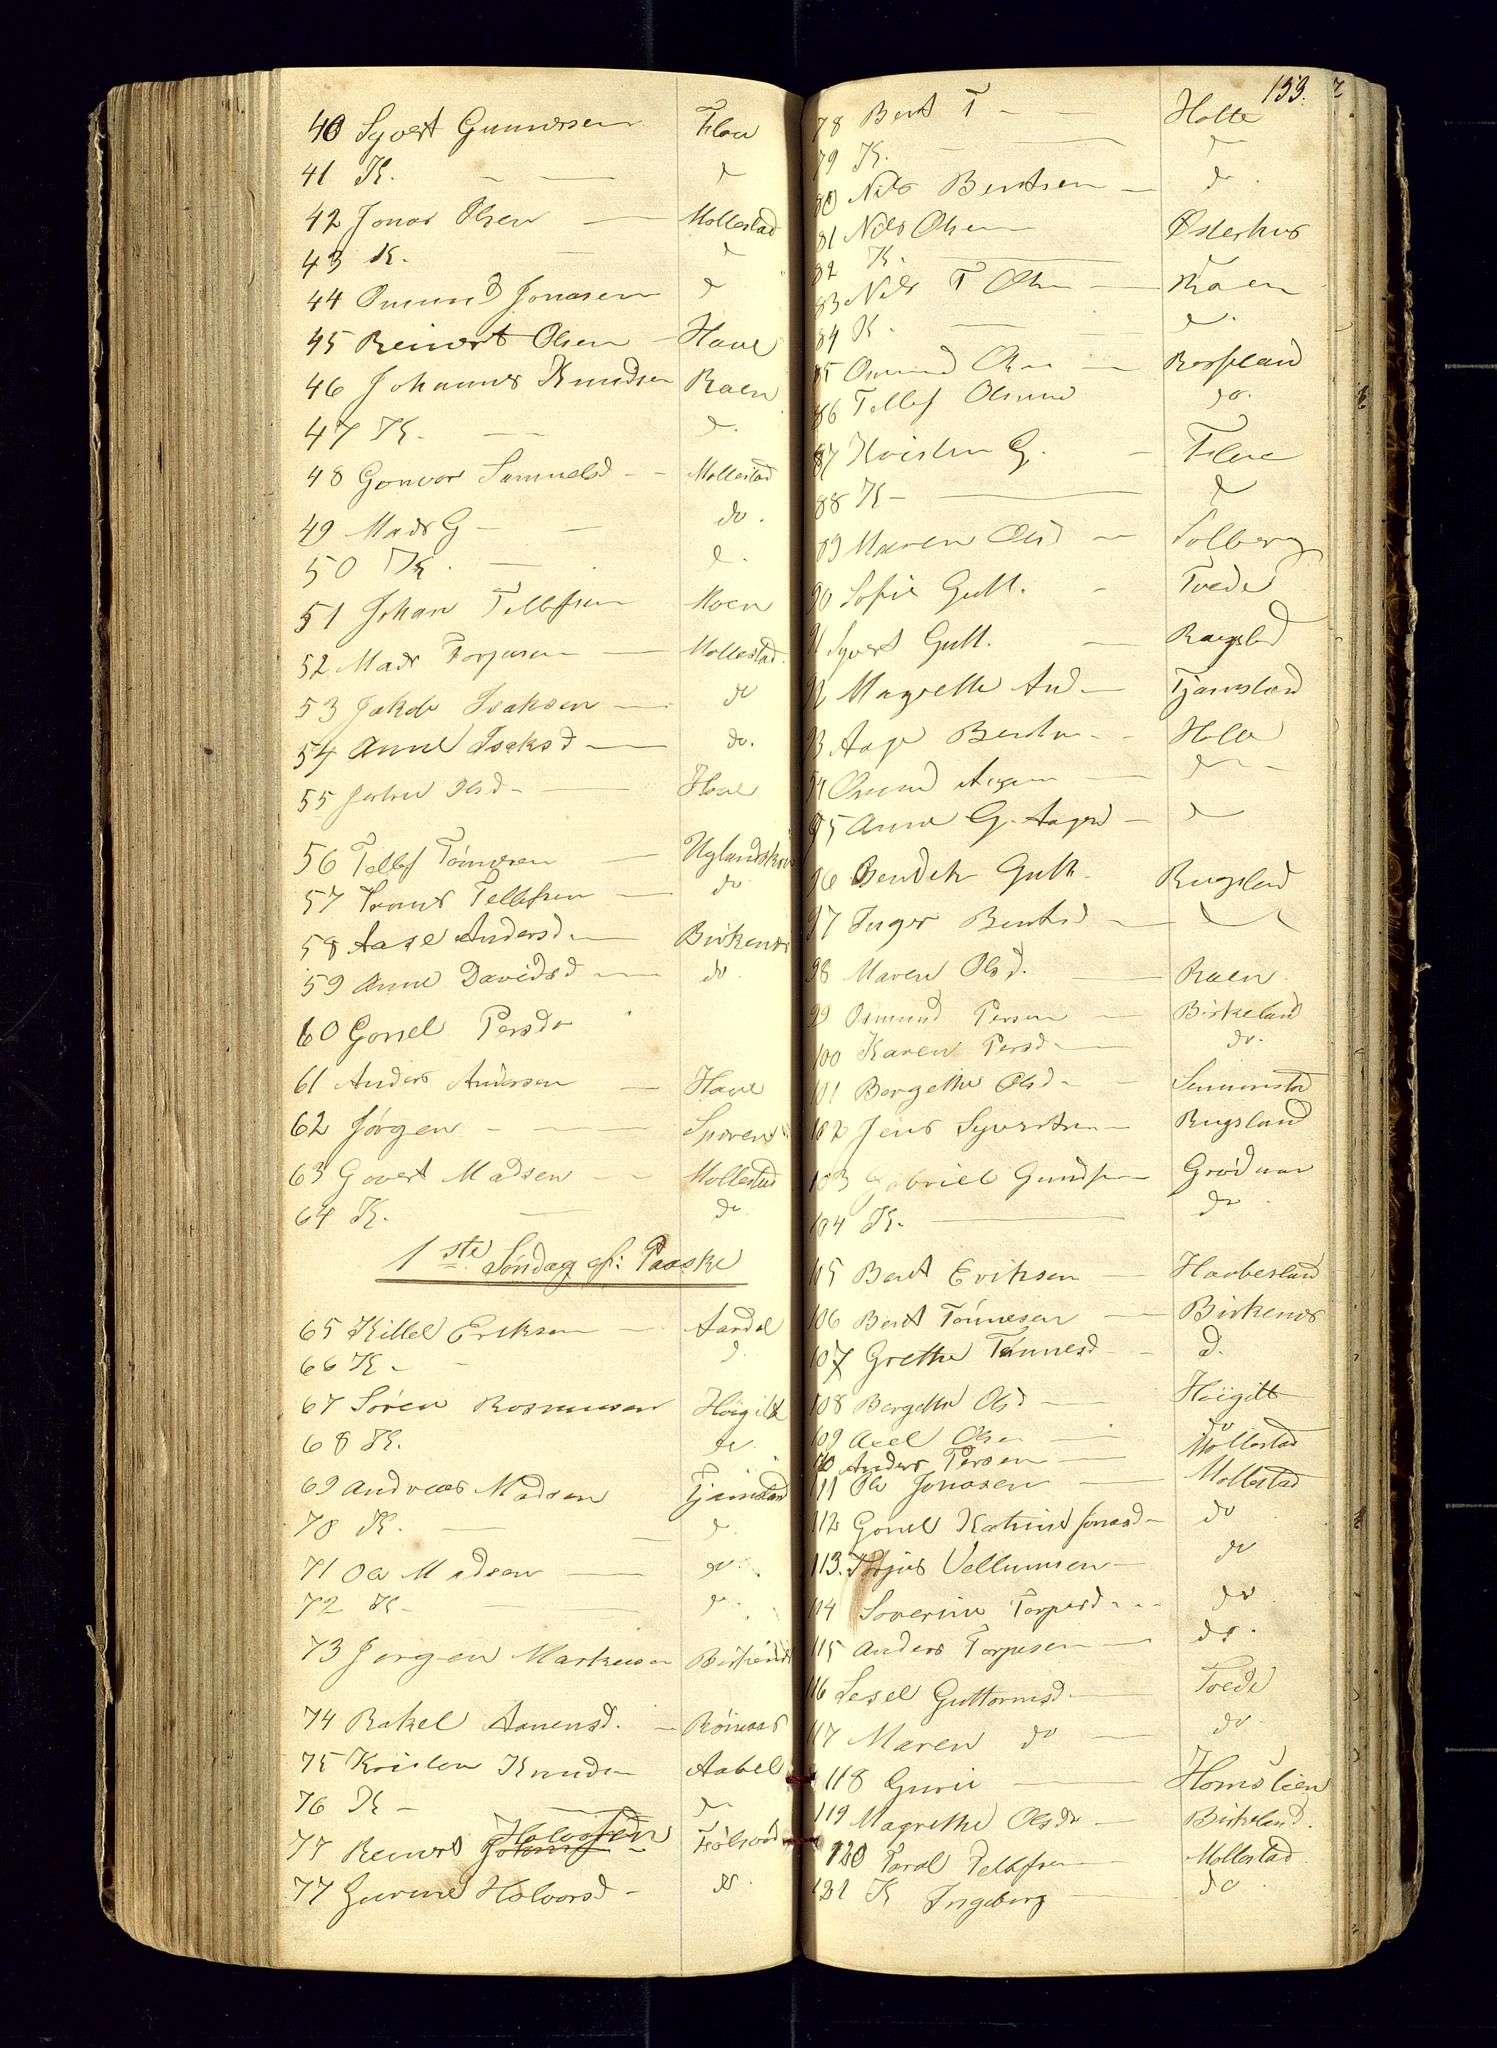 40 Syvert Gunersen Flaa
41 K. — — d
42 Jonas Olsen — Mollestad
43 K. — d
44 Omund Jonasen d
45 Reinert Olsen — Have
46 Johannes Knudsen Raen
47 K. — d.
48 Gonvor Samuelsd — Mollestad
49 Mads G — — do.
50 K. — d.
51 Johan Tellefsen Moen
52 Mads Torjusen — Mollestad.
53 Jakob Isaksen — do
54 Anne Isaksd — do.
55 Olsd — — Have
56 Tellef Tønnesen —
57 Tellefsen — do
58 Aase Andersd — Birkenes
59 Anne Davidsd — do.
60 Gonel Persd
61 Anders Andersen — Have
62 Jørgen — —
63 Govert Madsen — Mollestad
64 K. — do
1ste Søndag ef: Paaske
65 Killel Eriksen — Aardal
66 K — — d.
67 Søren Rasmusen Høigilt
68 K. do.
69 Andreas Madsen Tjamsland
70 K. — — d.
71 Ole Madsen — do.
72 K — — d.
73 Jørgen Markusen Birkenes
74 Rakel Aanensd. —
75 Kristen Knudsen Aabel
76 K — d
77 Reinert Halvorsen
77 Gurine Halvorsd — do.
153.
78 Bent T — — Holte
79 K. — d
80 Nils Bentsen — d.
81 Nils Olsen Østerhus
82 K. —
83 Nils T Olsen — Raen
84 K. — — d.
85 Osmund Olsen —
86 Tellef do.
87 Kristen G. — Flaa
88 K — — d
89 Maren Olsd — Solberg
90 Sofie Gutt. — Tvede
91 Syvert Gutt. — Rugslad
92 Magrethe And — Tjamsland
93 Aage Bentsen — Holte
94 Osmund Aagesen — d —
95 Anne G. Aagesd — d
96 Bendik Gutt. Rugslad
97 Inger Bentsd —
98 Maren Olsd. — Raen.
99 Osmund Persen — Birkeland
100 Karen Persd — do.
101 Bergethe Olsd —
102 Jens Syvertsen — Rugsland
103 Gabriel Gundersen — Grødum
104 K. — do.
105 Bent Eriksen — Haabesland
106 Bent Tønnesen — Birkenes
107 Grethe Tønnesd — d.
108 Bergethe Olsd — Høigilt
109 Axel Olsen — do
110 Anders Persen — Mollestad
111 Ole Jonasen — Mollestad
112 Gonel Katrine Jonasd — do
113. Torjus Vellumsen — do
114 Soverine Torjusd — do
115 Anders Torjusen — do.
116 Sesel Guttormsd. — Tvede
117 Maren do — do.
118 Gurie — Homslien
119 Magrethe Olsdr — Birkeland.
120 Taral Tellefsen — Mollestad.
121 K Ingeborg — do.